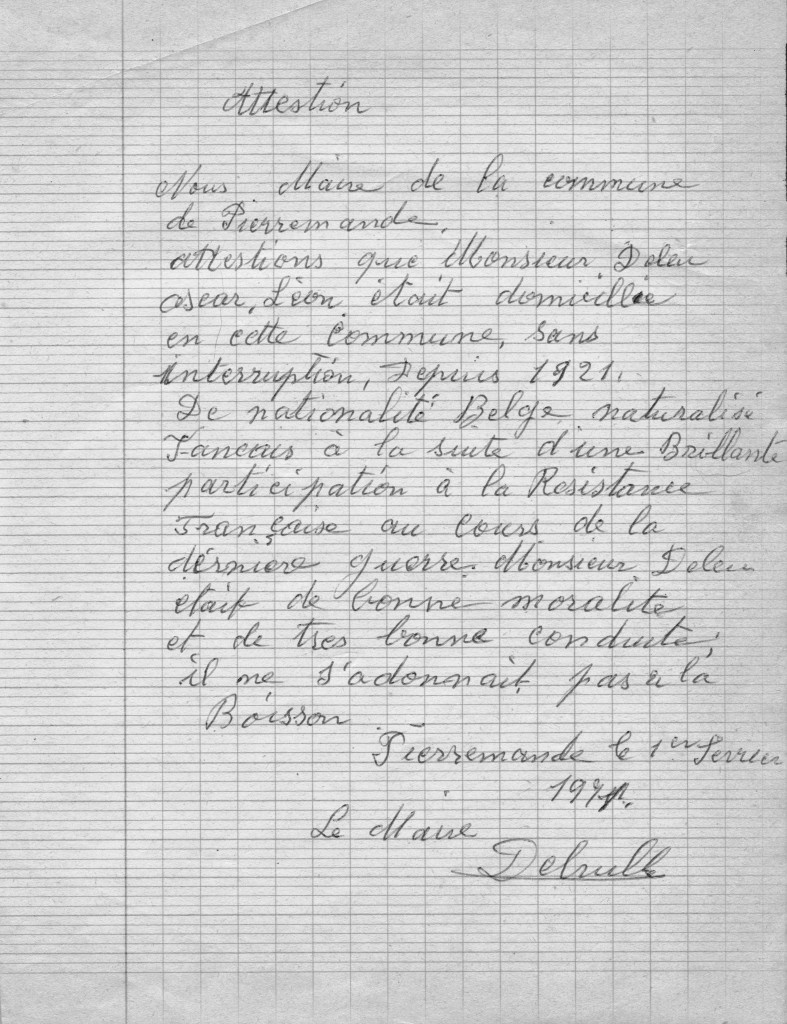 Attestion
Nous Maire de la commune
de Pierremande,
attestions que Monsieur Deleu
oscar, Léon était domicillie
en cette Commune, Sans
interruption, Depuis 1921.
De nationalité Belge naturalisé
Francais à la suite d'une Brillante
participation à la Resistance
Française au cours de la
dérnière guerre. Monsieur Deleu
etait de bonne moralite
et de tres bonne conduite,
il ne s'adonnait pas à la
Boisson
Pierremande le 1er Fevrier
Le Maire